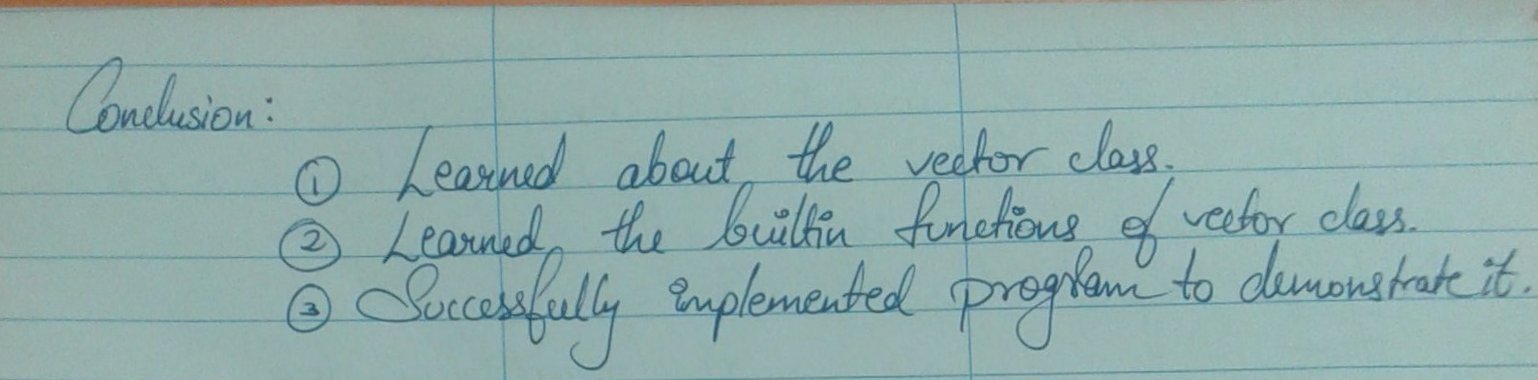 Conclusion:
① Learned about the vector class.
② Learned the builtin functions of vector class.
③ Successfully implemented program to demonstrate it.